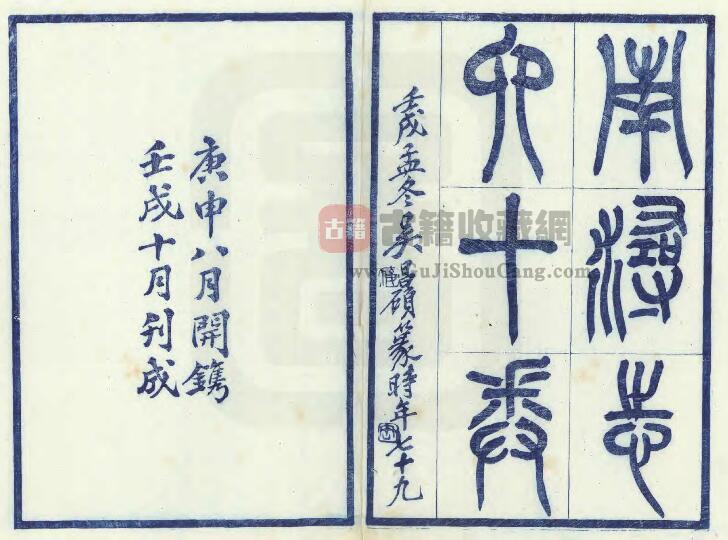 南潯志
六十卷
壬戌孟冬吳昌碩篆時年七十九
庚申八月開鐫
壬戌十月刊成
古籍 古籍收藏網
www.GuJiShouCang.com